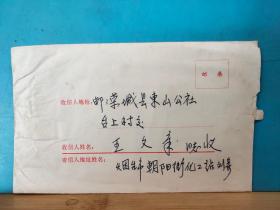 邮票
收信人地址：邮 荣城县东山公社
台上村交
收信人姓名：王文章 收
寄信人地址姓名：
烟台市朝阳街化工